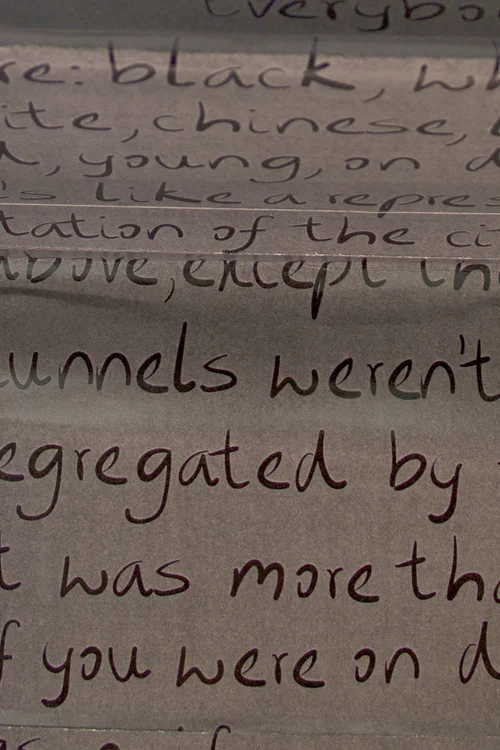 Everybo
re: black, wh
ite, chinese,
, young, on d
's like a repres
tation of the ci
above, except in
unnels weren't
egregated by
t was more tha
f you were on d